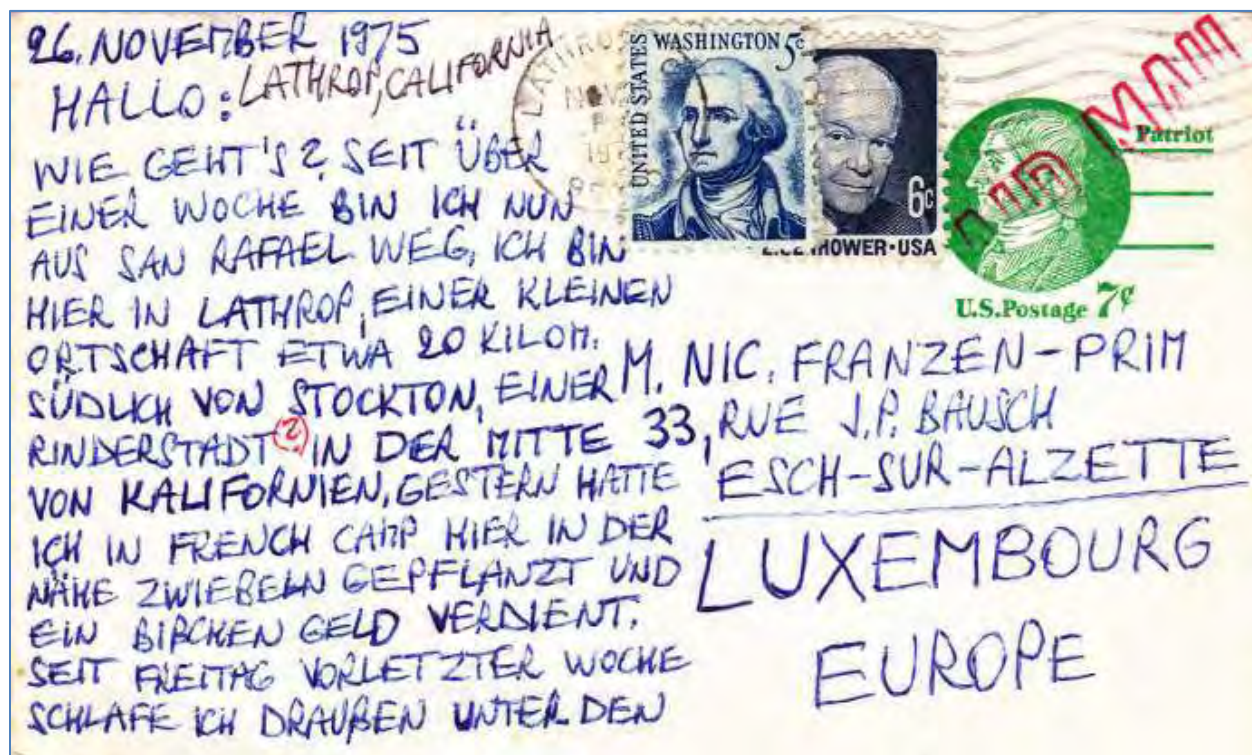 26. NOVEMBER 1975
HALLO: LATHROP, CALIFORNIA
WIE GEHT'S? SEIT ÜBER
EINER WOCHE BIN ICH NUN
AUS SAN RAFAEL WEG, ICH BIN
HIER IN LATHROP, EINER KLEINEN
ORTSCHAFT ETWA 20 KILOM.
SÜDLICH VON STOCKTON, EINER
RINDERSTADT (2) IN DER MITTE
VON KALIFORNIEN, GESTERN HATTE
ICH IN FRENCH CAMP HIER IN DER
NÄHE ZWIEBELN GEPFLANZT UND
EIN BIßCHEN GELD VERDIENT.
SEIT FREITAG VORLETZTER WOCHE
SCHLAFE ICH DRAUßEN UNTER DEN
LATHROP
NOV
UNITED STATES
WASHINGTON 5c
6c
EISENHOWER·USA
Patriot
U.S.Postage 7¢
M. NIC. FRANZEN-PRIM
33, RUE J.P. BAUSCH
ESCH-SUR-ALZETTE
LUXEMBOURG
EUROPE